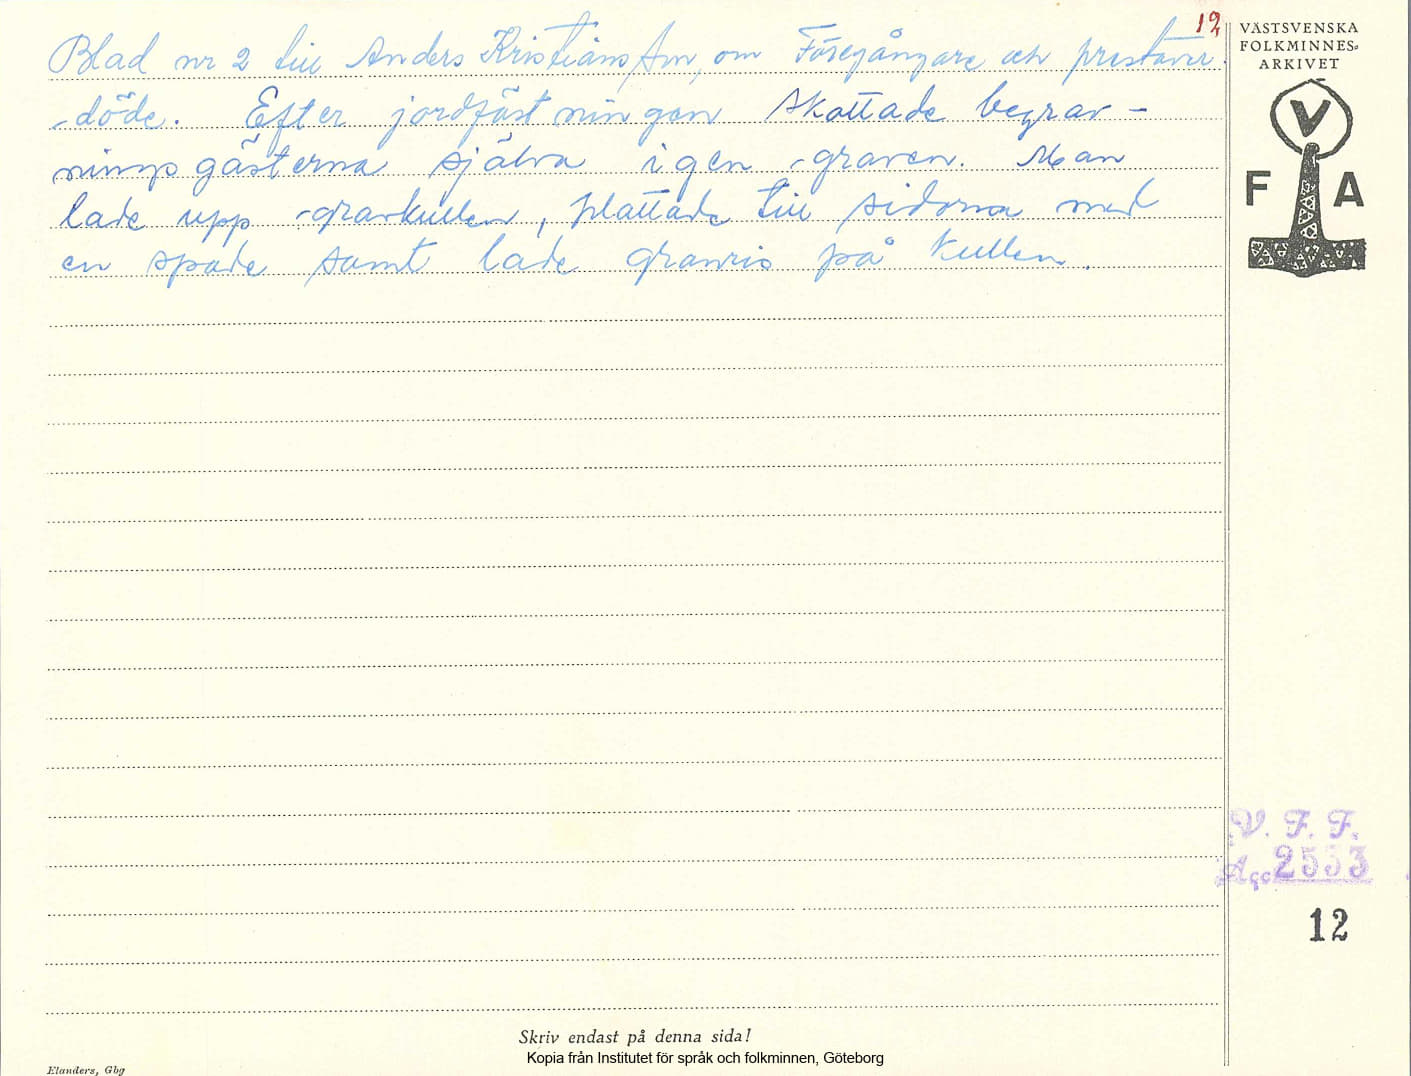 12
Blad nr 2 till Anders Kristians Am, om Föregångare och prestaver.
döde. Efter jordfästningen skottade begrav-
ningsgästerna själva igen graven. Man
lade upp gravkullen, plattade till sidorna med
en spade samt lade granris på kullen.
VÄSTSVENSKA
FOLKMINNES-
ARKIVET
V
F A
V. F. F.
Acc 2553
12
Skriv endast på denna sida!
Kopia från Institutet för språk och folkminnen, Göteborg
Elanders, Gbg